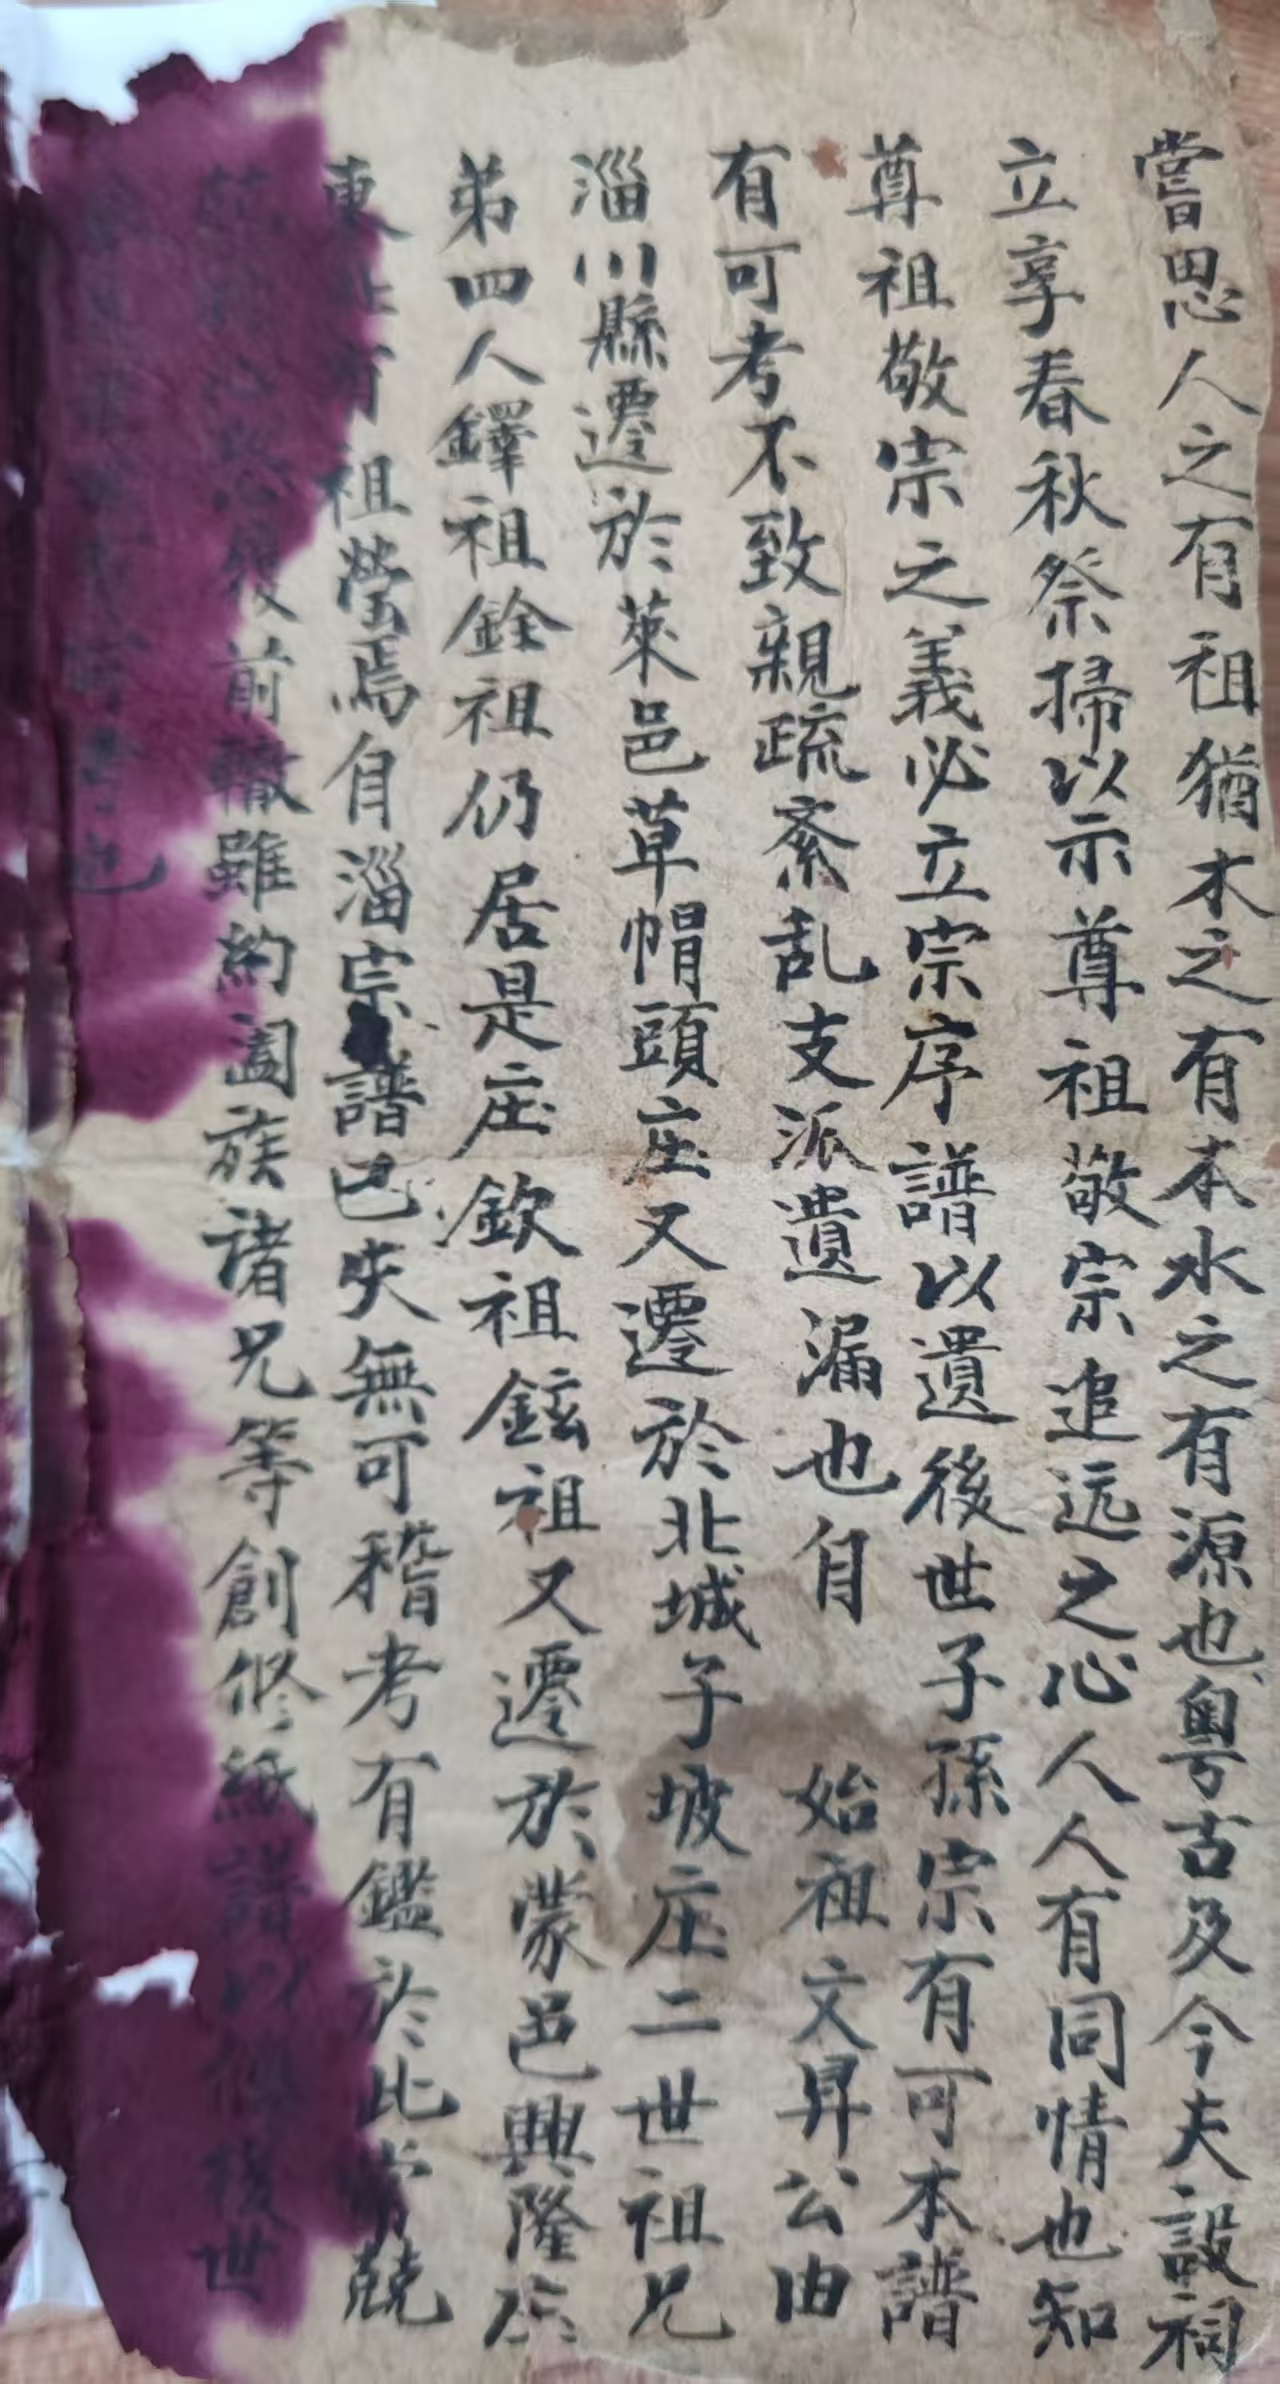 嘗思人之有祖猶木之有本水之有源也粤古及今夫設祠
立享春秋祭掃以示尊祖敬宗追远之心人人有同情也知
尊祖敬宗之義必立宗序譜以遺後世子孫宗有可本譜
有可考不致親疏紊乱支派遺漏也自 始祖文昇公由
淄川縣遷於萊邑草帽頭庄又遷於北城子坡庄二世祖兄
弟四人鐸祖銓祖仍居是庄欽祖鉉祖又遷於蒙邑興隆庄
東 有祖塋焉自淄宗譜已失無可稽考有鑑於此 兢
前轍雖約闔族诸兄等創修紙譜以傳後世
也